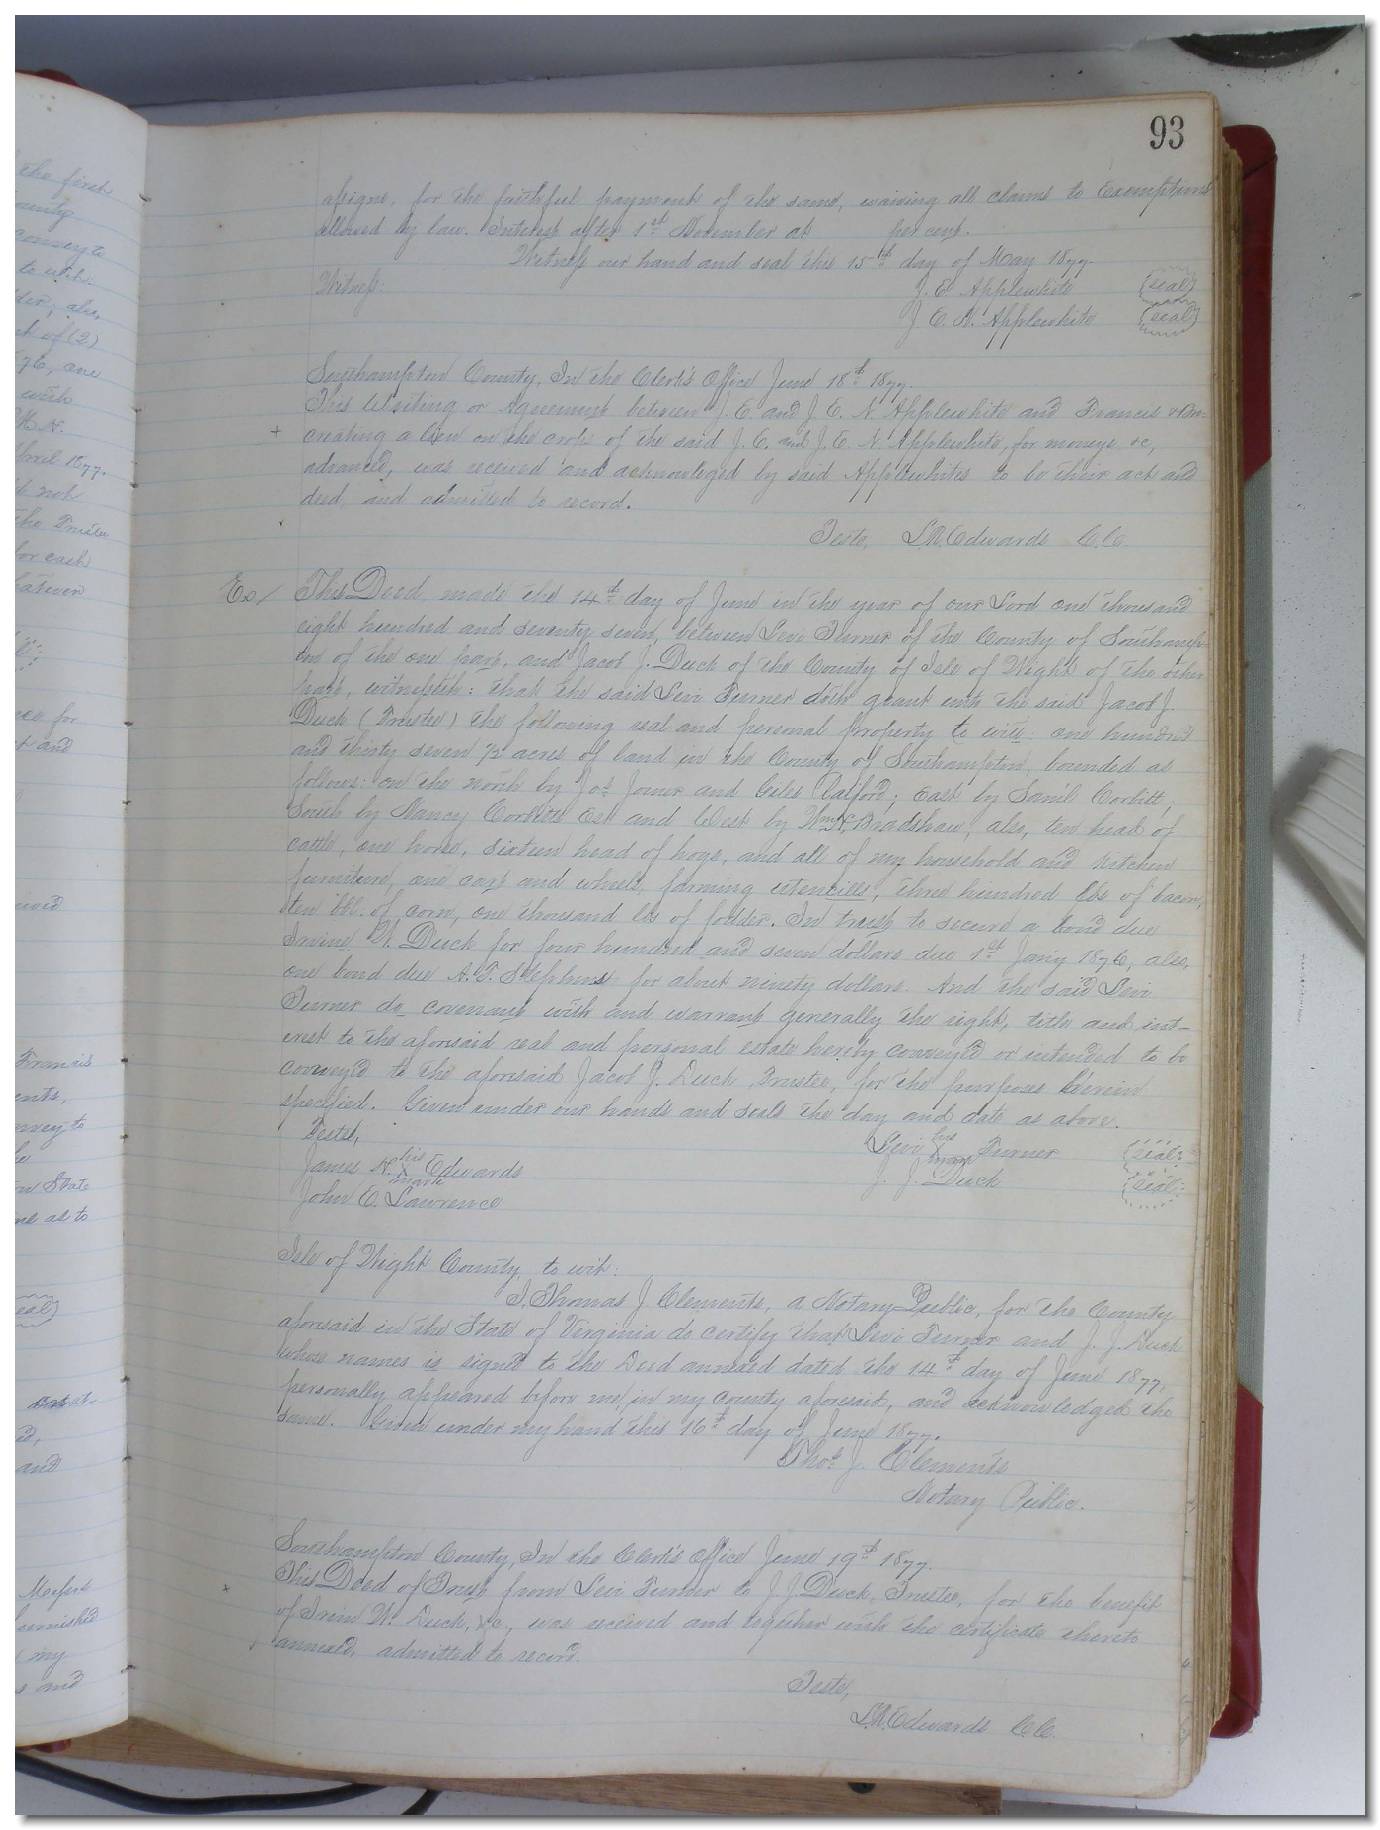 93
assigns, for the faithful payment of the same, waiving all claims to Exemptions
allowed by law. Interest after 1st November at per cent.
Witness our hand and seal this 15th day of May 1877.
Witness: J. E. Applewhite (seal)
J. E. N. Applewhite (seal)
Southampton County, In the Clerk's Office June 18th 1877.
This Writing or Agreement between J. E. and J. E. N. Applewhite and Francis &
creating a lien on the crops of the said J. E. and J. E. N. Applewhite, for moneys &c,
advanced, was received and acknowleged by said Applewhites to be their act and
deed, and admitted to record.
Teste, L.R. Edwards C.C.
Ex/ This Deed, made this 14th day of June in the year of our Lord one thousand
eight hundred and seventy seven, between Levi Turner of the County of Southamp-
ton of the one part, and Jacob J. Duck of the County of Isle of Wight of the other
part, witnesseth: that the said Levi Turner doth grant unto the said Jacob J.
Duck (Trustee) the following real and personal Property to wit: one hundred
and thirty seven 1/2 acres of land in the County of Southampton, bounded as
follows: on the north by Jos Joiner and Giles ; East by Saml Corbitt;
South by Nancy Corbitts Est and West by Wm H. Bradshaw, also, ten head of
cattle, one horse, sixteen head of hogs, and all of my household and kitchen
furniture, one cart and wheels, farming utencills, three hundred lbs of bacon,
ten bbl. of corn, one thousand lbs of fodder. In trust to secure a bond due
Irvine W. Duck for four hundred and seven dollars due 1st Jany 1876, also,
one bond due A. T. Stephens for about ninety dollars. And the said Levi
Turner do covenant with and warrant generally the right, title and int-
erest to the aforesaid real and personal estate hereby convey'd or intended to be
convey'd to the aforesaid Jacob J. Duck, Trustee, for the purposes herein
specified. Given under our hands and seals the day and date as above.
Teste, Levi his X mark Turner (seal)
James N. his X mark Edwards J. J. Duck (seal)
John E. Lawrence
Isle of Wight County, to wit:
I, Thomas J. Clements, a Notary Public, for the County
aforesaid in the State of Virginia do certify that Levi Turner and J. J. Duck
whose names is signed to the Deed annexed dated the 14th day of June 1877,
personally appeared before me, in my county aforesaid, and acknowledged the
same. Given under my hand this 16th day of June 1877.
Thos J. Clements
Notary Public.
Southampton County, In the Clerk's Office June 19th 1877.
This Deed of Trust from Levi Turner to J J Duck, Trustee, for the benefit
of Irvin W. Duck, &c., was received and together with the certificate thereto
annexed, admitted to record.
Teste,
L.R. Edwards C.C.